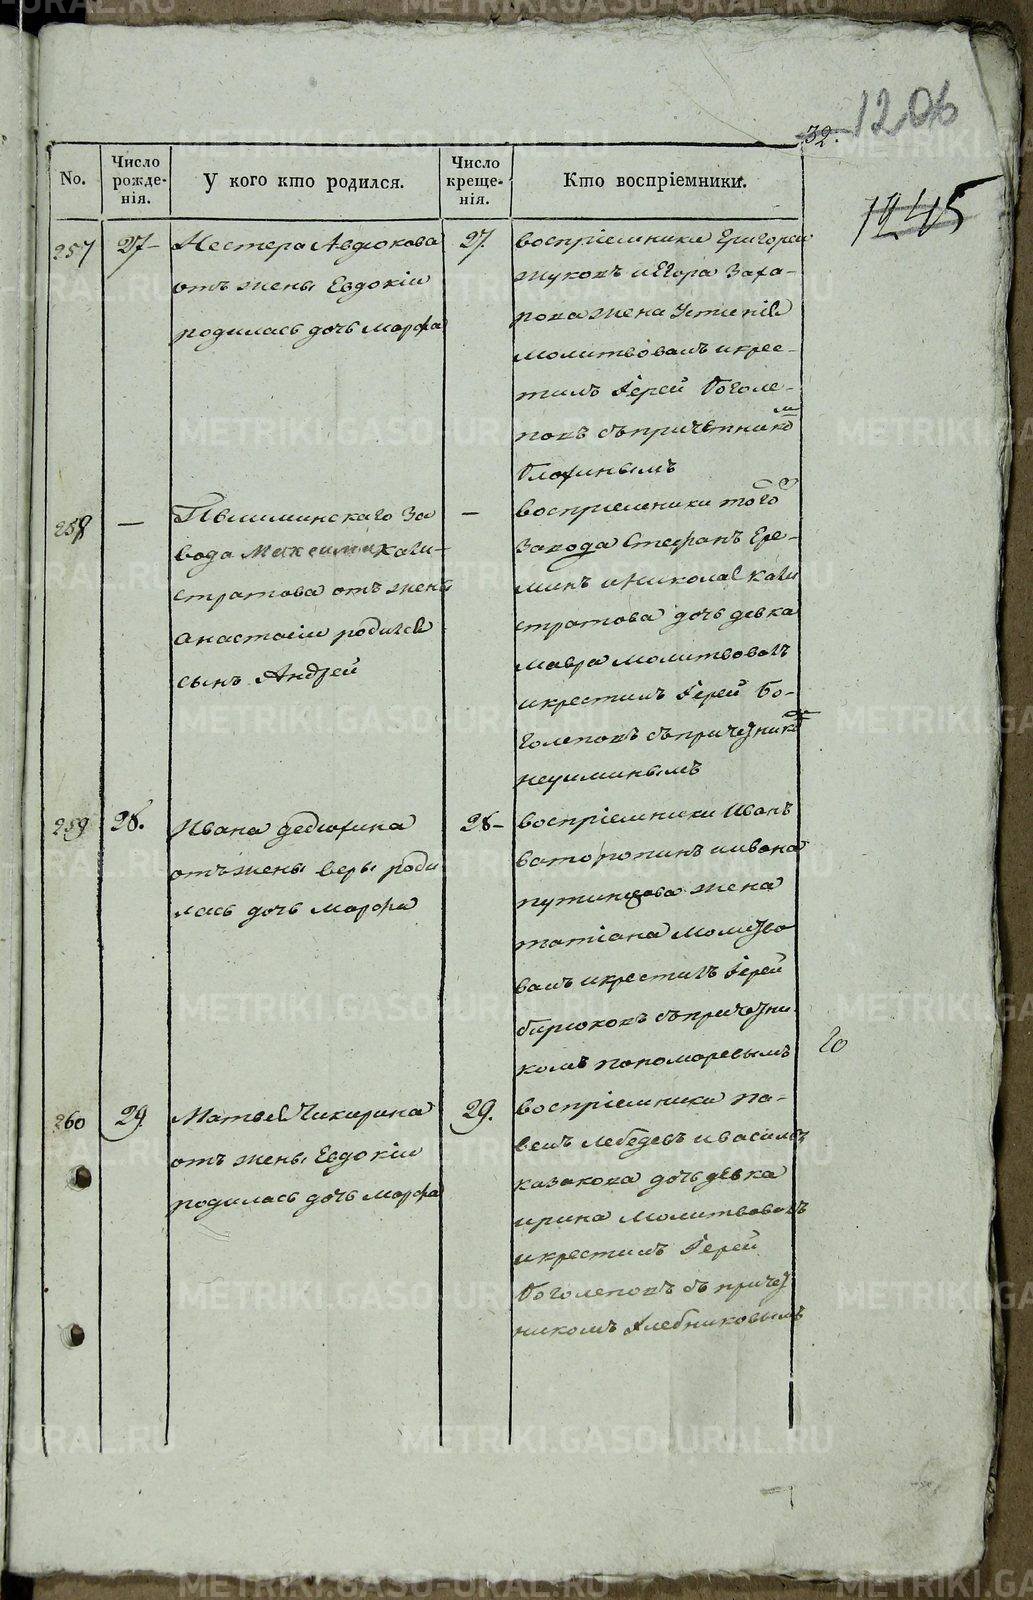 32.
1206
1245
No.
Число рожде-нія.
У кого кто родился.
Число креще-нія.
Кто воспріемники.
257
27
Нестера Авдюкова
отъ жены Евдокіи
родилась дочь марѳа
27.
воспріемники Григорей
жуковъ и Егора Заха-
рова жена Устинія
молитвовалъ и крес-
тилъ Іерей Боголе-
повъ съ причетником
Блохинымъ
258
—
Пышминскаго За
вода Максима Кали-
стратова отъ жены
анастасіи родился
сынъ Андрей
—
воспріемники того
Завода Стефанъ Ере-
минъ и николая Кали
стратова дочь девка
мавра молитвовалъ
и крестилъ Іерей Бо-
голеповъ съ причетник
неуиминымъ
259
28.
Ивана федюхина
отъ жены веры роди
лась дочь марѳа
28-
воспріемники Иванъ
ваторопинъ и ивана
путинцова жена
татіана молитво
валъ и крестилъ Іерей
бирюковъ съ причетни
комъ пономаревымъ
20
260
29
Матвея Чикирина
отъ жены Евдокіи
родилась дочь марѳа
29.
воспріемники па-
велъ лебедевъ и василья
казакова дочь девка
ирина молитвовалъ
и крестилъ Іерей
Боголеповъ съ причет
никомъ хлебниковымъ
METRIKI.GASO-URAL.RU